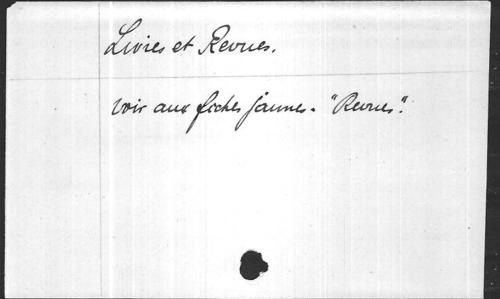 Livres et Revues.
voir aux fiches jaunes. "Revues".